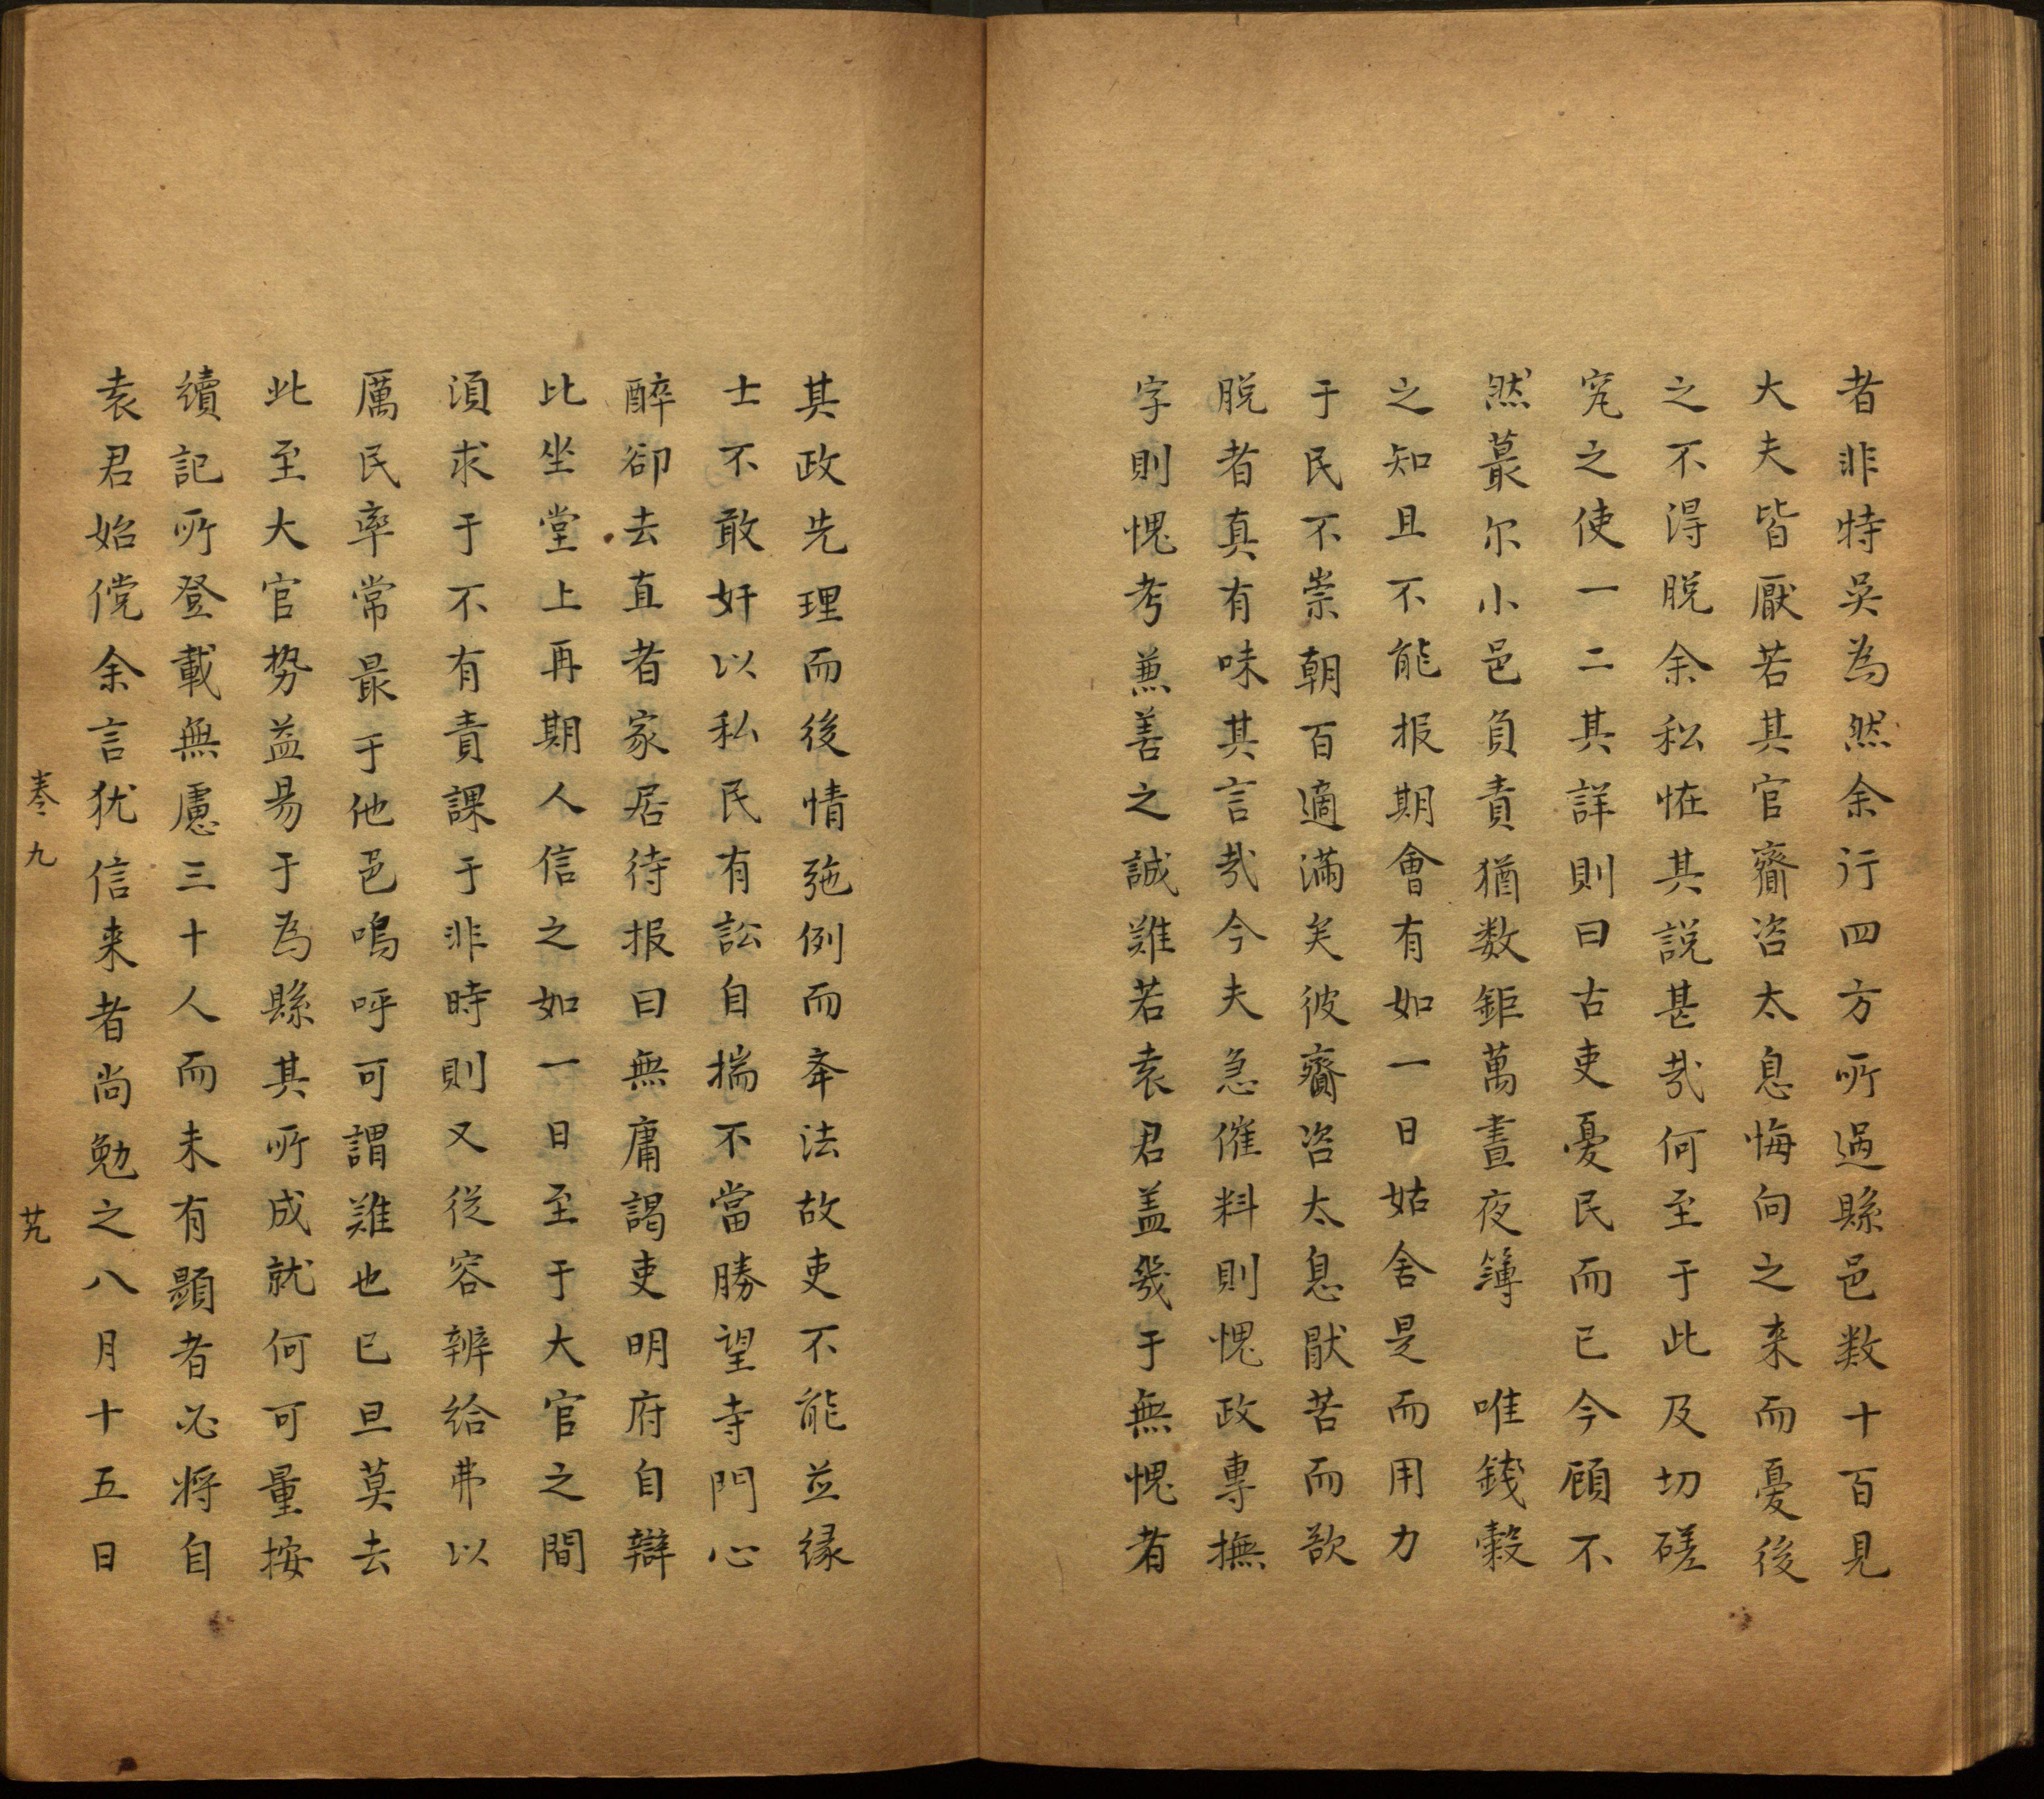 者非特吳為然余行四方所過縣邑数十百見
大夫皆厭若其官齎咨太息悔向之来而憂後
之不得脱余私恠其説甚㢤何至于此及切磋
究之使一二其詳則曰古吏憂民而已今顧不
然蕞尔小邑負責猶数鉅萬晝夜簿　唯錢榖
之知且不能报期會有如一日姑舍是而用力
于民不崇朝百適滿矣彼齎咨太息猒苦而欲
脱者真有味其言㢤今夫急催料則愧政專撫
字則愧考兼善之誠難若袁君盖幾于無愧者
其政先理而後情㢮例而奉法故吏不能並緣
士不敢奸以私民有訟自揣不當勝望寺門心
醉卻去直者家居待报曰無庸謁吏明府自辯
比坐堂上再期人信之如一日至于大官之間
湏求于不有責課于非時則又從容辨給弗以
厲民率常最于他邑嗚呼可謂難也已旦莫去
此至大官势益易于為縣其所成就何可量按
續記所登載無慮三十人而未有顯者必将自
袁君始儻余言犹信来者尚勉之八月十五日
卷九　廿九